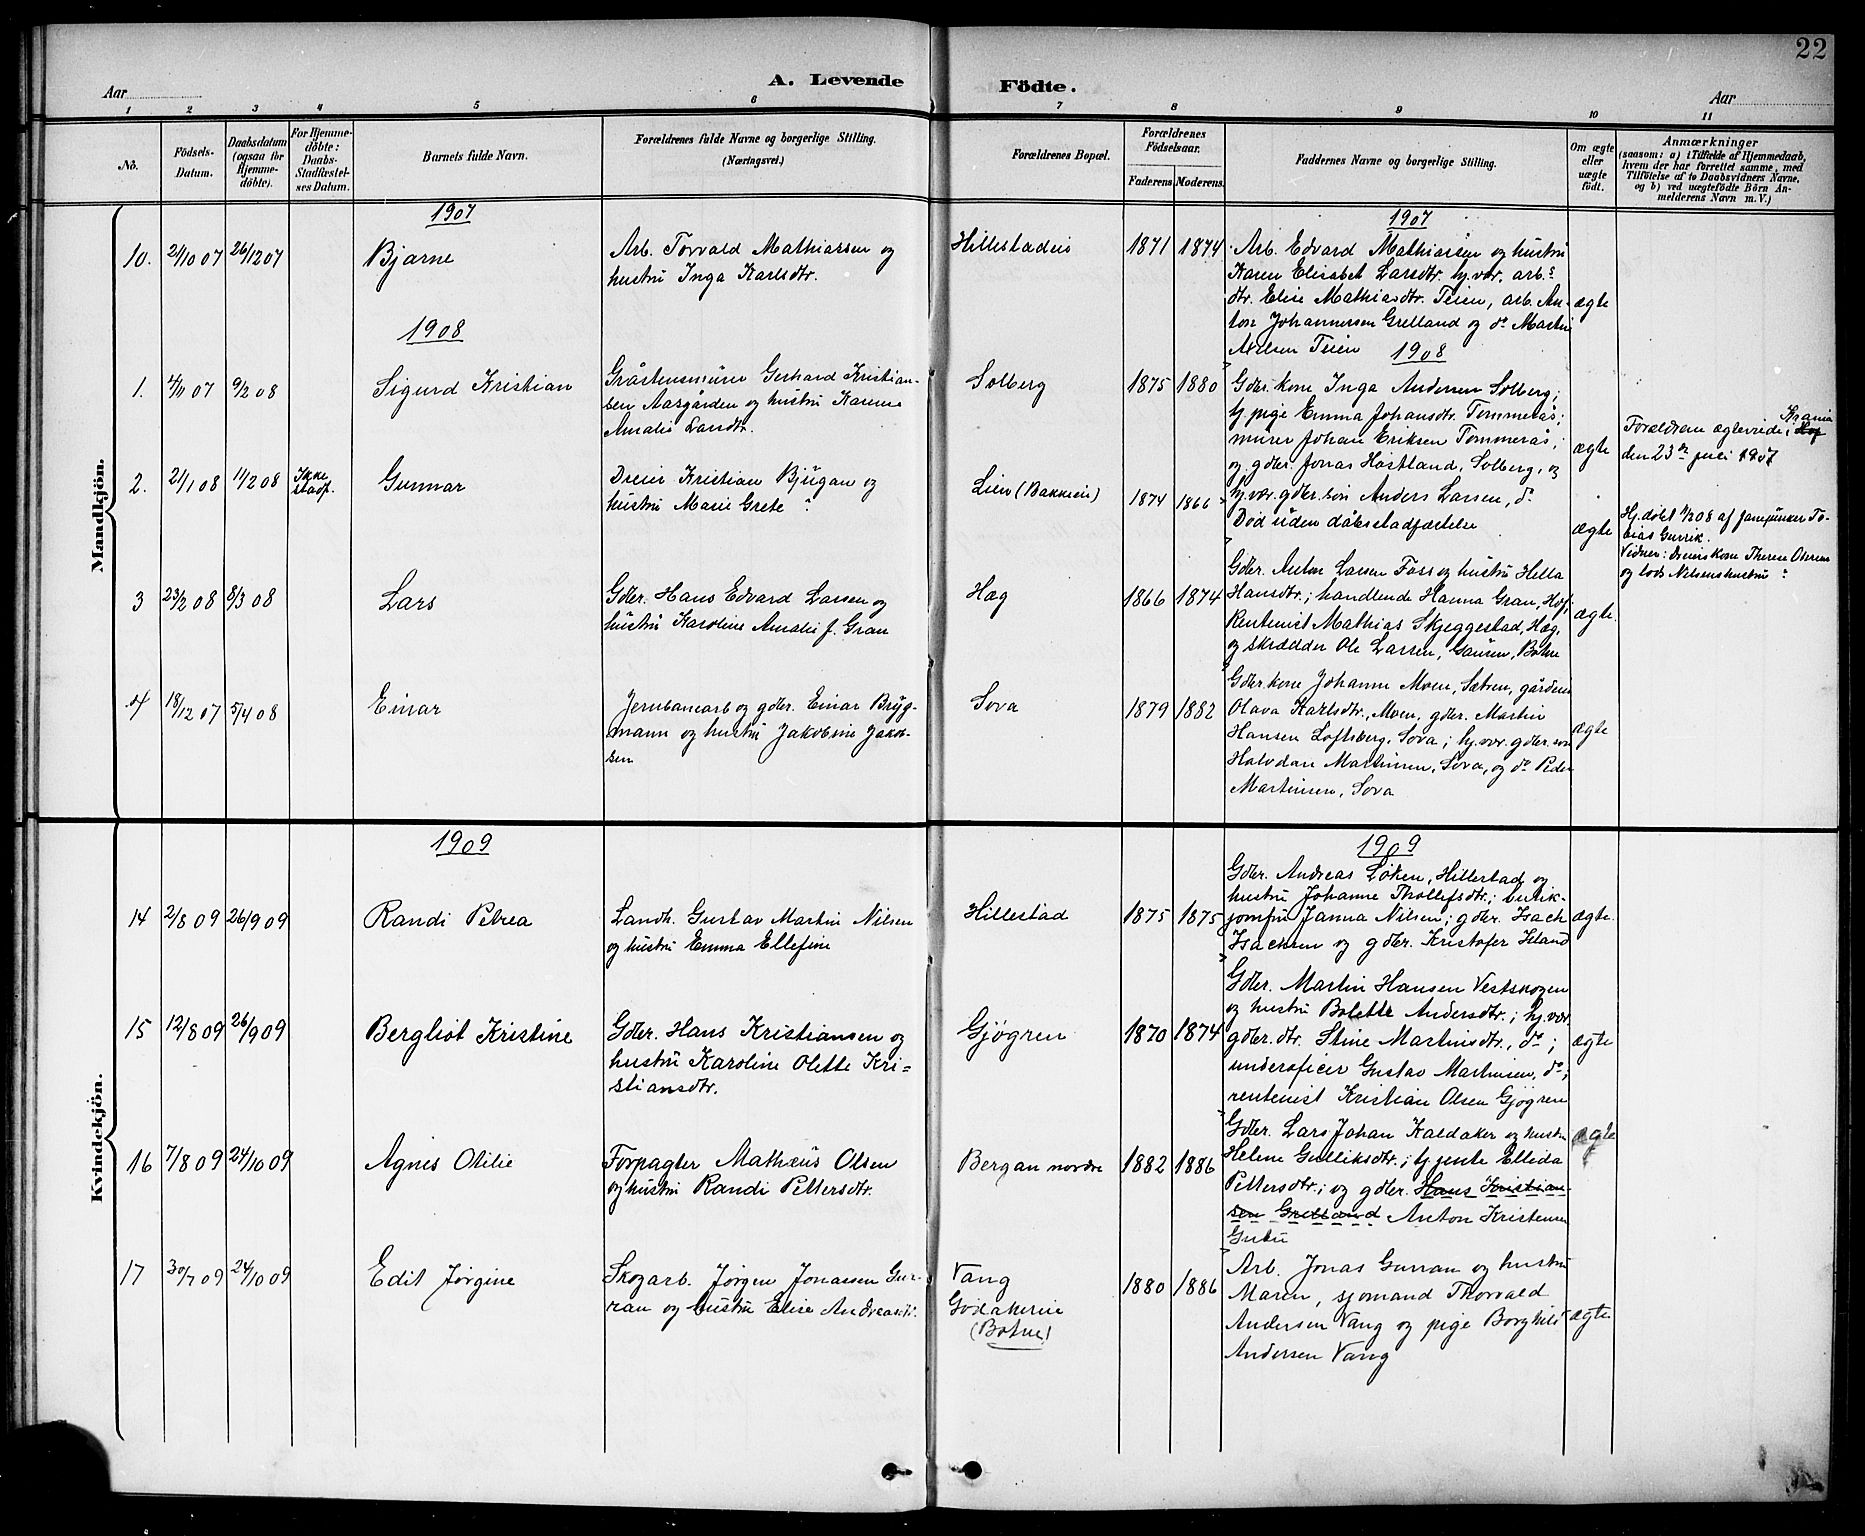 22
Aar
A. Levende
Födte.
Aar
1 2 3 4 5 6 7 8 9 10 11
No.
Födsels-
Datum.
Daabsdatum
(ogsaa for
Hjemme-
döbte).
For Hjemme-
döbte:
Daabs-
Stadfæstel-
ses Datum.
Barnets fulde Navn.
Forældrenes fulde Navne og borgerlige Stilling.
(Næringsvei.)
Forældrenes Bopæl.
Forældrenes
Födselsaar.
Faderens
Moderens.
Faddernes Navne og borgerlige Stilling.
Om ægte
eller
uægte
födt.
Anmærkninger
(saasom: a) i Tilfælde af Hjemmedaab,
hvem der har forrettet samme, med
Tilföielse af to Daabsvidners Navne,
og b) ved uægtefödte Börn An-
melderens Navn m.V.)
Mandkjön.
1907
1907
10.
21/10 07
26/12 07
Bjarne
Arb. Torvald Mathiassen og
hustru Inga Karlsdtr.
Hillestadeie
1871
1874
Arb. Edvard Mathiassen og hustru
Karen Elisabet Larsdtr. hj.vær. arb.s
dtr. Elise Mathiasdtr. Teien, arb. An-
ton Johannersen Grelland og do Martin
Nilsen Teien
ægte
1908
1908
1.
4/11 07
9/2 08
Sigurd Kristian
Gråstensmurer Gerhard Kristian-
sen Aasgården og hustru Karen
Amalie Larsdtr.
Solberg
1875
1880
Gdbr. kone Inga Andersen Solberg;
tj. pige Emma Johansdtr. Tommerås;
murer Johan Eriksen Tommerås;
og gdbr. Jonas Høstland, Solberg, og
hj.vær. gdbr. søn Anders Larsen, do
ægte
Forældrene ægteviede i Hof Krania
den 23de juli 1907
2.
21/1 08
11/2 08
Ikke
stadf.
Gunnar
Dreier Kristian Bjugan og
hustru Marie Grete ?
Lien (Bakkeien)
1874
1866
Død uden dåbsstadfæstelse
ægte
Hj. døbt 11/2 08 af
Vidner: Dreierskone Therese
og lods Nilsens hustru ?
3
23/2 08
8/3 08
Lars
Gdbr. Hans Edvard Larsen og
hustru Karoline Amalie f. Gran
Hæg
1866
1874
Gdbr. Anton Larsen Foss og hustru Hella
Hansdtr.; handlende Hanna Gran, Hof;
Rentenist Mathias Skjeggestad, Hæg,
og skrædder Ole Larsen, Gausen, Botne
ægte.
4
18/12 07
5/4 08
Einar
Jernbanearb og gdbr. Einar Bryg-
mann og hustru Jakobine Jakob-
sen
Sova
1879
1882
Gdbr. kone Johanne Moen, Sætren, gårdens
Olava Karlsdtr., Moen, gdbr. Martin
Hansen Loftsberg, Sova; hj.vær. gdbr. søn
Halvdan Martinsen, Sova, og do Peder
Martinsen, Sova
ægte
Kvindekjön.
1909
1909
14
2/8 09
26/9 09
Randi Petrea
Landh. Gustav Martin Nilsen
og hustru Emma Ellefine
Hillestad
1875
1875
Gdbr. Andreas Løken, Hillestad og
hustru Johanne Thollefsdtr.; butik-
jomfru Janna Nilsen; gdbr. Isach
Isachsen og gdbr. Kristofer Island
ægte.
15
12/8 09
26/9 09
Bergliot Kristine
Gdbr. Hans Kristiansen og
hustru Karoline Olette Kri=
stiansdtr.
Gjøgren
1870
1874
Gdbr. Martin Hansen Vestskogen
og hustru Bolette Andersdtr.; hj.vær.
gdbr. dtr. Stine Martinsdtr., do;
underoficer Gustav Martinsen, do;
rentenist Kristian Olsen Gjøgren
ægte
16
7/8 09
24/10 09
Agnes Otilie
Forpagter Mathæus Olsen
og hustru Randi Pettersdtr.
Bergan nordre
1882
1886
Gdbr. Lars Johan Kaldaker og hustru
Helene Gulliksdtr.; tj. jente Ellida
Pettersdtr.; og gdbr. Hans Kristian-
sen Grelland Anton Kristensen
ægte
17
30/7 09
24/10 09
Edit Jørgine
Skogarb. Jørgen Jonassen Gur-
ran og hustru Elise Andreasdtr.
Vang
Godakereie
(Botne)
1880
1886
Arb. Jonas Gurran og hustru
Maren, sjømand Thorvald
Andersen Vang og pige Borghild
Andersen Vang
ægte